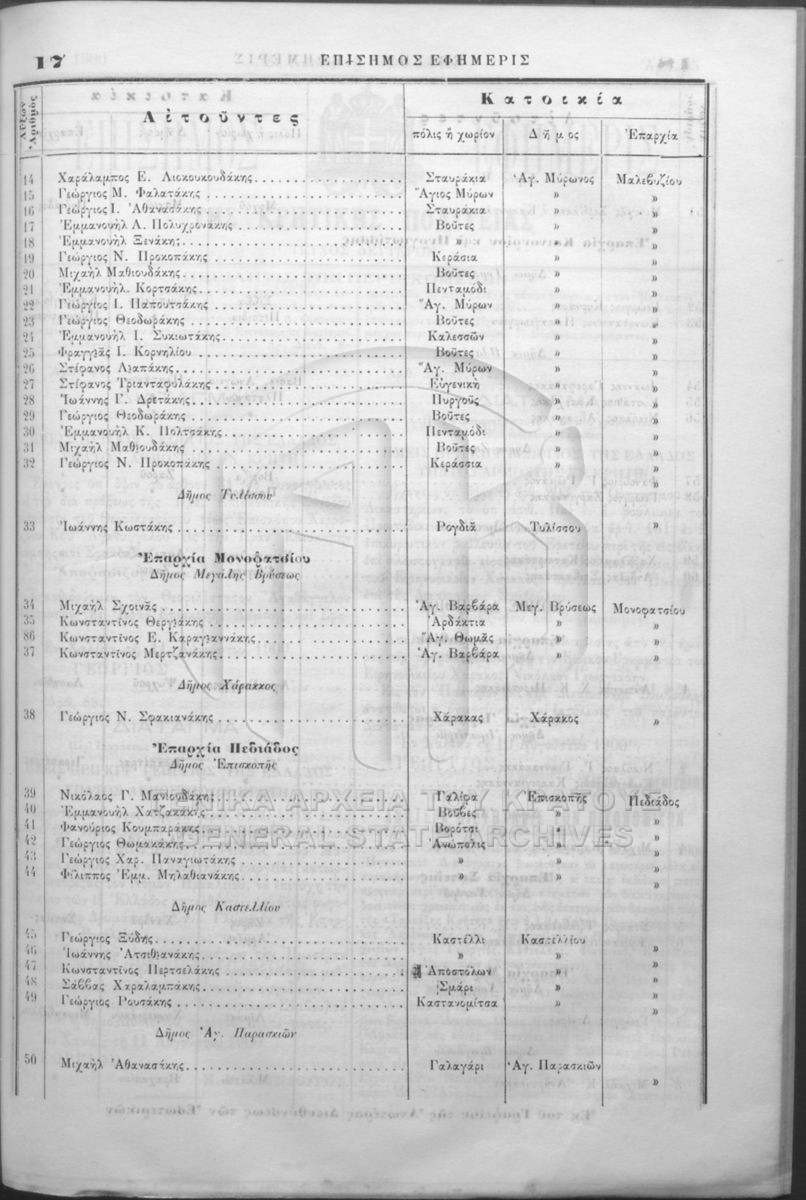 17 ΕΠΙΣΗΜΟΣ ΕΦΗΜΕΡΙΣ
Αὔξων Ἀριθμὸς Αἰτοῦντες Κατοικία
πόλις ἢ χωρίον Δῆμος Ἐπαρχία
14 Χαράλαμπος Ε. Λιοκουκουδάκης Σταυράκια Ἁγ. Μύρωνος Μαλεβυζίου
15 Γεώργιος Μ. Φαλατάκης Ἅγιος Μύρων » »
16 Γεώργιος Ι. Ἀθανασάκης Σταυράκια » »
17 Ἐμμανουὴλ Λ. Πολυχρονάκης Βοῦτες » »
18 Ἐμμανουὴλ Ξενάκης » » »
19 Γεώργιος Ν. Προκοπάκης Κεράσια » »
20 Μιχαὴλ Μαθιουδάκης Βοῦτες » »
21 Ἐμμανουὴλ. Κορτσάκης Πενταμόδι » »
22 Γεώργιος Ι. Παπουτσάκης Ἅγ. Μύρων » »
23 Γεώργιος Θεοδωράκης Βοῦτες » »
24 Ἐμμανουὴλ Ι. Συκιωτάκης Καλεσσῶν » »
25 Φραγγιᾶς Ι. Κορνηλίου Βοῦτες » »
26 Στέφανος Λιαπάκης Ἅγ. Μύρων » »
27 Στέφανος Τριανταφυλάκης Εὐγενικὴ » »
28 Ἰωάννης Γ. Δρετάκης Πυργοῦς » »
29 Γεώργιος Θεοδωράκης Βοῦτες » »
30 Ἐμμανουὴλ Κ. Πολτσάκης Πενταμόδι » »
31 Μιχαὴλ Μαθιουδάκης Βοῦτες » »
32 Γεώργιος Ν. Προκοπάκης Κεράσσια » »
Δῆμος Τυλίσσου
33 Ἰωάννης Κωστάκης Ρογδιᾶ Τυλίσσου »
Ἐπαρχία Μονοφατσίου
Δῆμος Μεγάλης Βρύσεως
34 Μιχαὴλ Σχοινᾶς Ἁγ. Βαρβάρα Μεγ. Βρύσεως Μονοφατσίου
35 Κωνσταντῖνος Θεργιάκης Ἀρδάκτια » »
86 Κωνσταντῖνος Ε. Καραγιαννάκης Ἅγ. Θωμᾶς » »
37 Κωνσταντῖνος Μερτζανάκης Ἁγ. Βαρβάρα » »
Δῆμος Χάρακκος
38 Γεώργιος Ν. Σφακιανάκης Χάρακας Χάρακος »
Ἐπαρχία Πεδιάδος
Δῆμος Ἐπισκοπῆς
39 Νικόλαος Γ. Μανιουδάκης Γαλίφα Ἐπισκοπῆς Πεδιάδος
40 Ἐμμανουὴλ Χατζακάκης Βουβες » »
41 Φανούριος Κουμπαράκης Βορότσι » »
42 Γεώργιος Θωμακάκης Ἀνώπολις » »
43 Γεώργιος Χαρ. Παναγιωτάκης » » »
44 Φίλιππος Ἐμμ. Μηλαθιανάκης » » »
ΓΕΝΙΚΑ ΑΡΧΕΙΑ ΤΟΥ ΚΡΑΤΟΥΣ
GENERAL STATE ARCHIVES
Δῆμος Καστελλίου
45 Γεώργιος Ξύδης Καστέλλι Καστελλίου »
46 Ἰωάννης Ἀτσιθιανάκης » » »
47 Κωνσταντῖνος Περτσελάκης Ἀποστόλων » »
48 Σάββας Χαραλαμπάκης Σμάρι » »
49 Γεώργιος Ρουσάκης Καστανομίτσα » »
Δῆμος Ἁγ. Παρασκιῶν
50 Μιχαὴλ Ἀθανασάκης Γαλαγάρι Ἁγ. Παρασκιῶν »